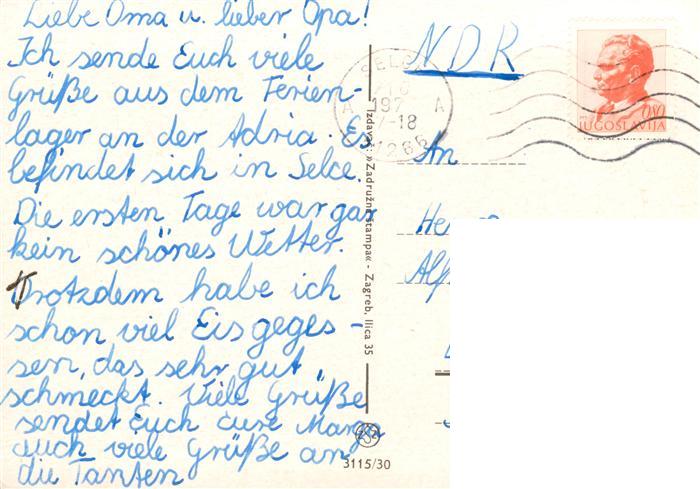 Liebe Oma u. lieber Opa!
Ich sende Euch viele
Grüße aus dem Ferien-
lager an der Adria. Es
befindet sich in Selce.
Die ersten Tage war gar
kein schönes Wetter.
Trotzdem habe ich
schon viel Eis geges-
sen, das sehr gut
schmeckt. Viele Grüße
sendet Euch Eure
auch viele Grüße an
die Tanten
Izdavač: »Zadružna štampa« - Zagreb, Ilica 35
3115/30
NDR
SELCE
197
A A
-18
51266
JUGOSLAVIJA
An